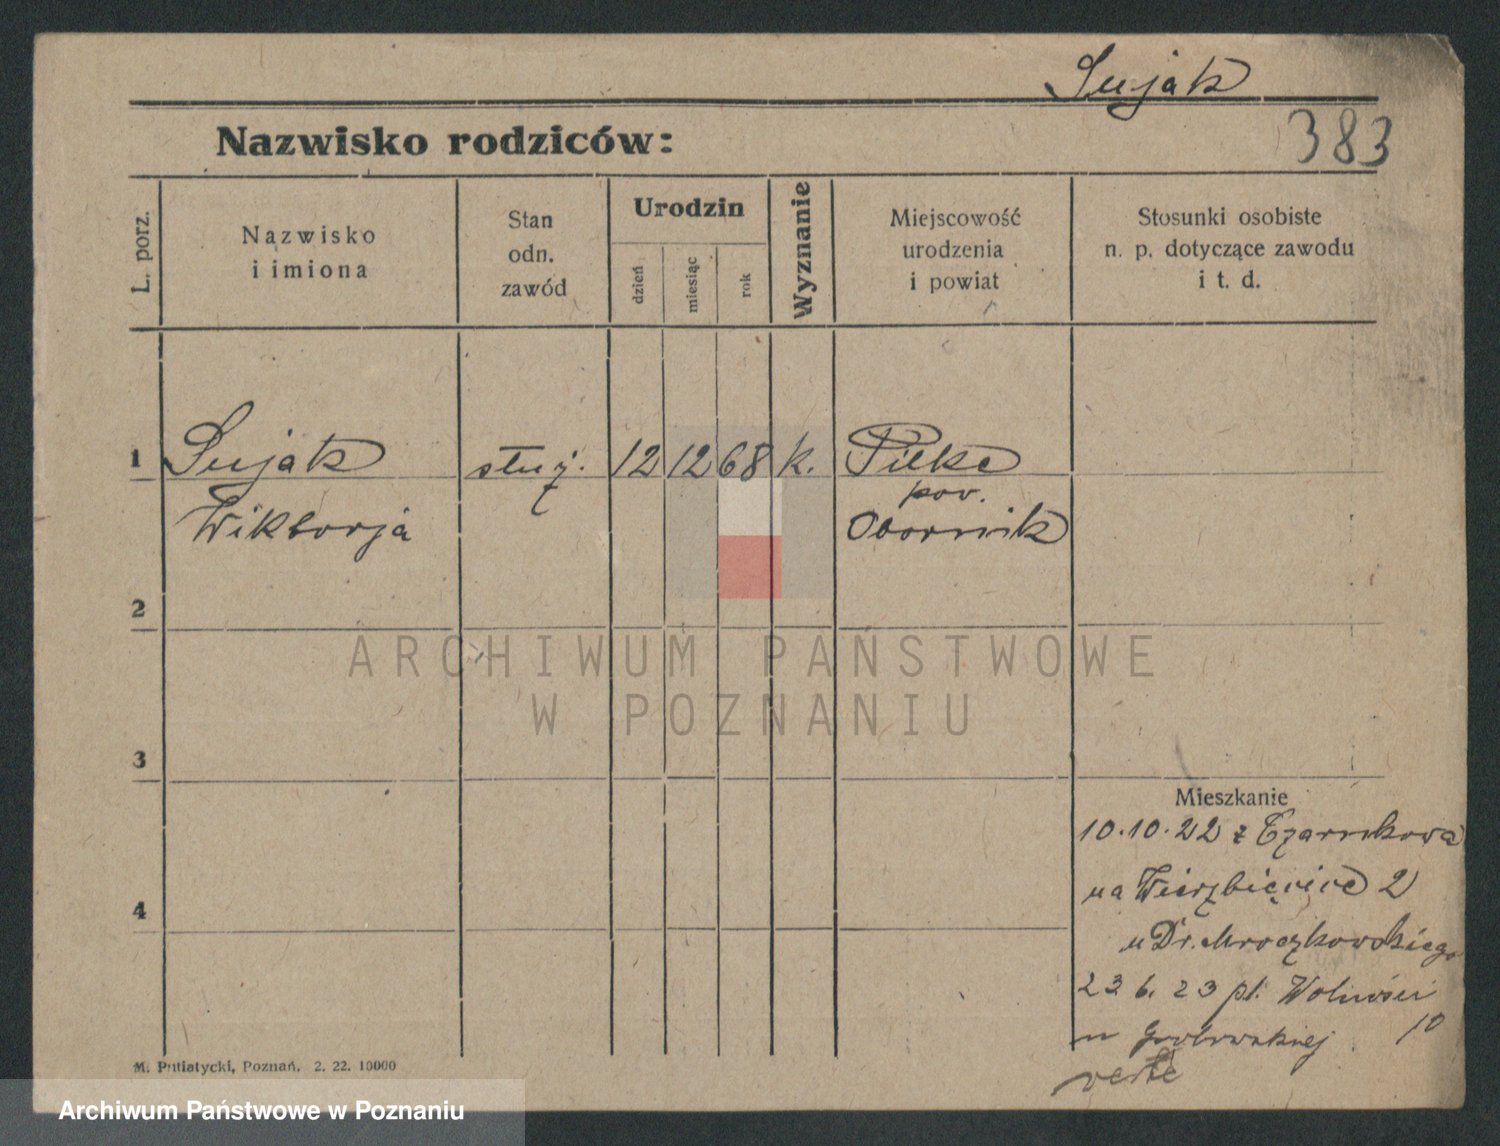 Sujak
Nazwisko rodziców:
383
L. porz.
Nazwisko
i imiona
Stan
odn.
zawód
Urodzin
dzień
miesiąc
rok
Wyznanie
Miejscowość
urodzenia
i powiat
Stosunki osobiste
n. p. dotyczące zawodu
i t. d.
1 Sujak służ. 12 12 68 k.
pov.
Wiktorja Obornik
2
ARCHIWUM PAŃSTWOWE
W POZNANIU
3
Mieszkanie
10.10.22 z Czarnkowa
4
na Wierzbięcice 2
u Dr. Mroczkowskiego
23 6. 23 pl. Wolności
10
verte
M. Putiatycki, Poznań. 2. 22. 10000
Archiwum Państwowe w Poznaniu